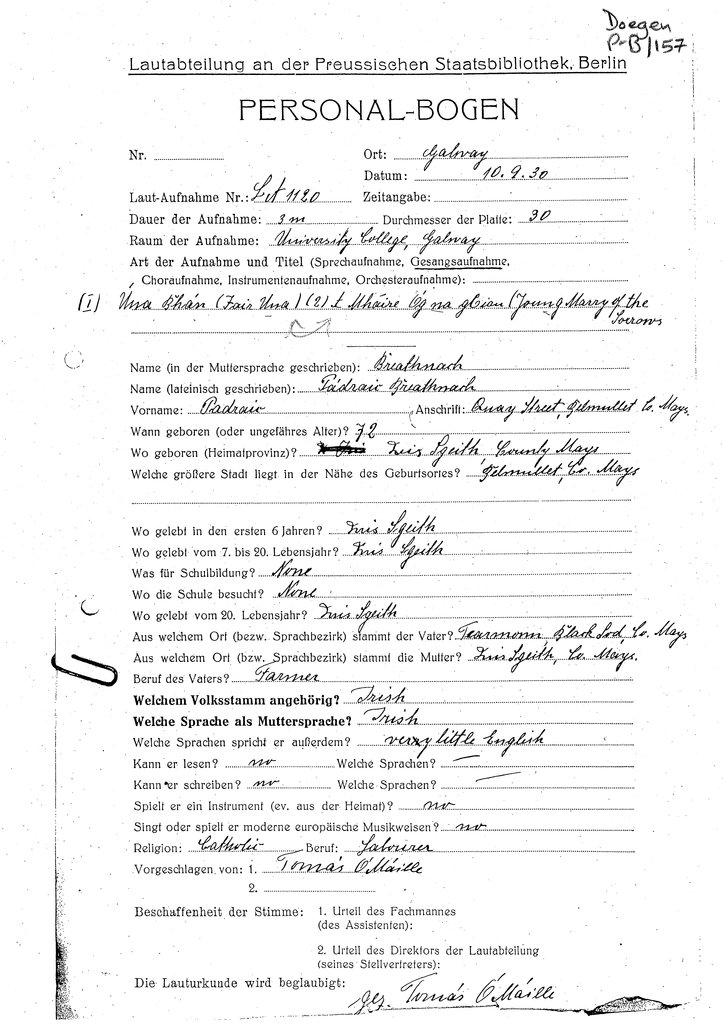 Doegen
P-B/157
Lautabteilung an der Preussischen Staatsbibliothek, Berlin
PERSONAL-BOGEN
Nr. Ort: Galway
Datum: 10. 9. 30
Laut-Aufnahme Nr.: LA 1120 Zeitangabe:
Dauer der Aufnahme: 3 m Durchmesser der Platte: 30
Raum der Aufnahme: University College, Galway
Art der Aufnahme und Titel (Sprechaufnahme, Gesangsaufnahme,
Choraufnahme, Instrumentenaufnahme, Orchesteraufnahme):
(1) Úna Bhán (Fair Una) (2) t Mháire Óg na gCian (Young Marry of the
Sorrows
Name (in der Muttersprache geschrieben): Breathnach
Name (lateinisch geschrieben): Pádraic Breathnach
Vorname: Padraic Anschrift: Quay Street, Belmullet Co. Mayo.
Wann geboren (oder ungefähres Alter)? 72
Wo geboren (Heimatprovinz)? Inis Sgeith, County Mayo
Welche größere Stadt liegt in der Nähe des Geburtsortes? Belmullet, Co. Mayo
Wo gelebt in den ersten 6 Jahren? Inis Sgeith
Wo gelebt vom 7. bis 20. Lebensjahr? Inis Sgeith
Was für Schulbildung? None
Wo die Schule besucht? None
Wo gelebt vom 20. Lebensjahr? Inis Sgeith
Aus welchem Ort (bezw. Sprachbezirk) stammt der Vater? Tearmonn, Black Sod, Co. Mayo
Aus welchem Ort (bzw. Sprachbezirk) stammt die Mutter? Inis Sgeith, Co. Mayo.
Beruf des Vaters? Farmer
Welchem Volksstamm angehörig? Irish
Welche Sprache als Muttersprache? Irish
Welche Sprachen spricht er außerdem? very little English
Kann er lesen? no Welche Sprachen? —
Kann er schreiben? no Welche Sprachen? —
Spielt er ein Instrument (ev. aus der Heimat)? no
Singt oder spielt er moderne europäische Musikweisen? no
Religion: Catholic Beruf: Labourer
Vorgeschlagen von: 1. Tomás Ó'Máille
2.
Beschaffenheit der Stimme: 1. Urteil des Fachmannes
(des Assistenten):
2. Urteil des Direktors der Lautabteilung
(seines Stellvertreters):
Die Lauturkunde wird beglaubigt:
gez. Tomás Ó'Máille